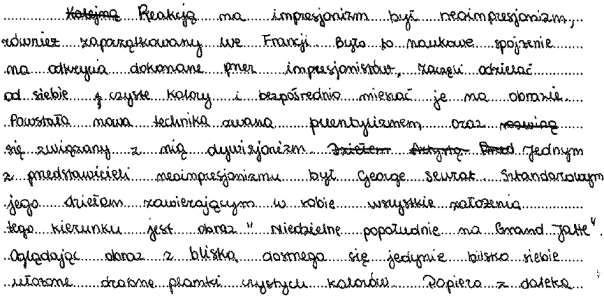 Kolejną Reakcją na impresjonizm był neoimpresjonizm,
również zapoczątkowany we Francji. Było to naukowe spojrzenie
na odkrycia dokonane przez impresjonistów, zaczęli odzielać
od siebie czyste kolory i bezpośrednio mieszać je na obrazie.
Powstała nowa technika zwana puentylizmem oraz
się związany z nią dywizjonizm. Dziełem Jednym
z przedstawicieli neoimpresjonizmu był George Seurat. Sztandarowym
jego dziełam zawierającym w sobie wszystkie założenia
tego kierunku jest obraz " Niedzielne popołudnie na Grand Jatte".
Oglądając obraz z bliska dostrzega się jedynie blisko siebie
ułożone drobne plamki czystych kolorów. Dopiero z daleka